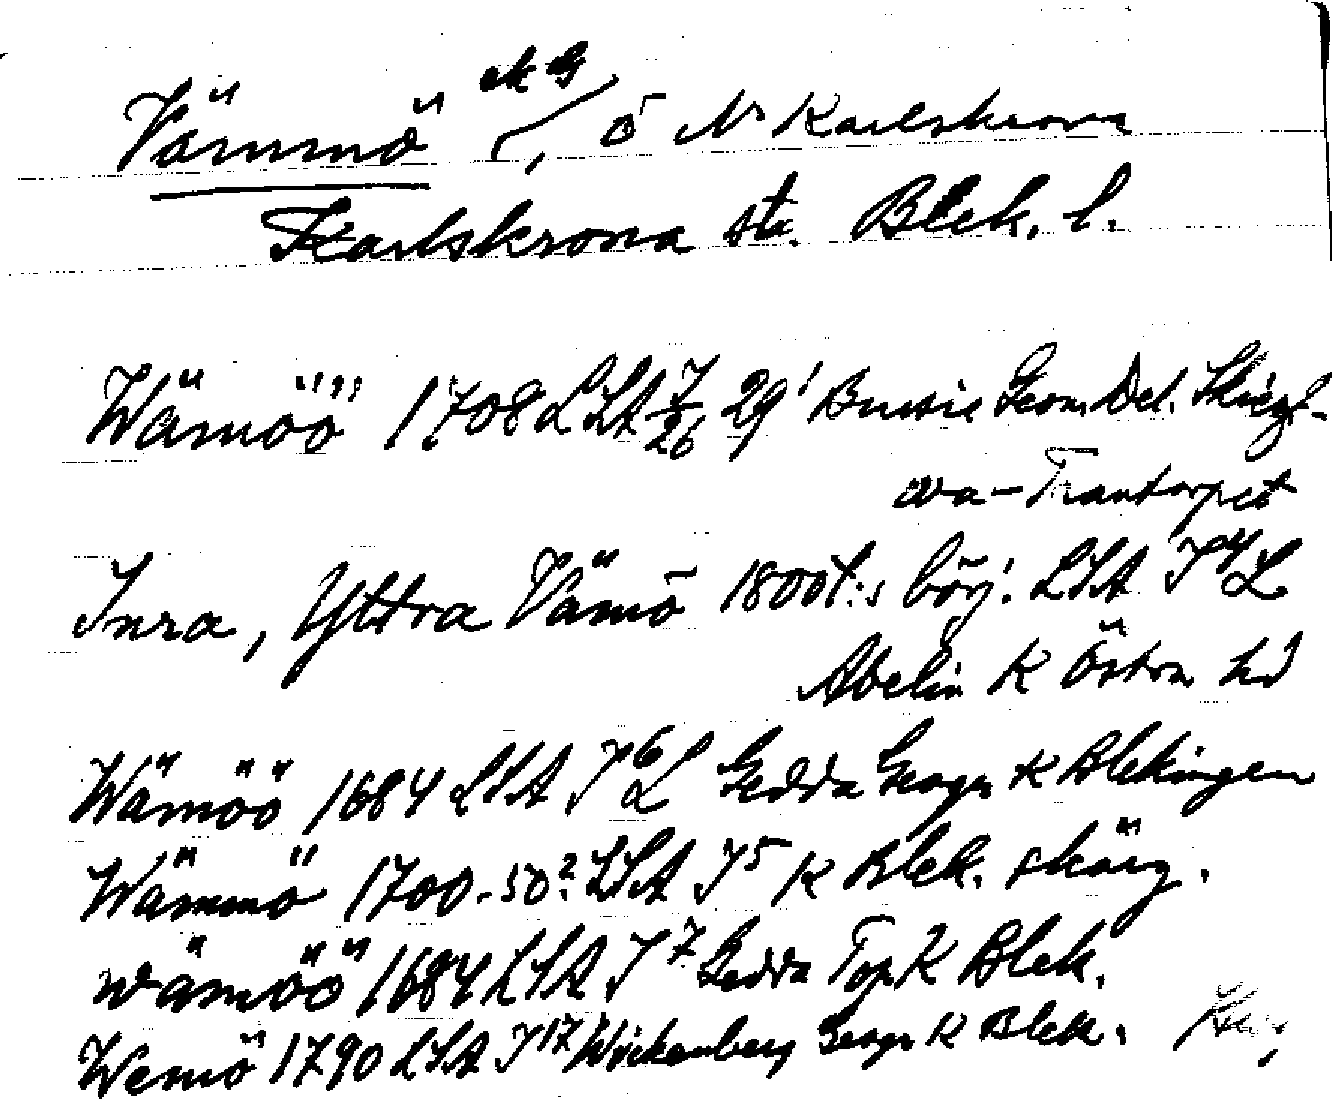 Vämmö, ö N Karlskrona
Karlskrona st. Blek. l.
Wämöö 1708 LSA 29 Geom. Del.
Trantorpet
Inra, Yttra Vämö 1800t:s börj. LSA J4L
Abelin K Östra hd
Wämöö 1684 LSA J6L Gedda Geogr K Blekingen
Wämmö 1700-50? LSA J5 K Blek. skärg.
Wämöö 1684 LSA J7 Gedda Top K Blek.
Wemö 1790 LSA J17 Wickenberg Geogr K Blek.